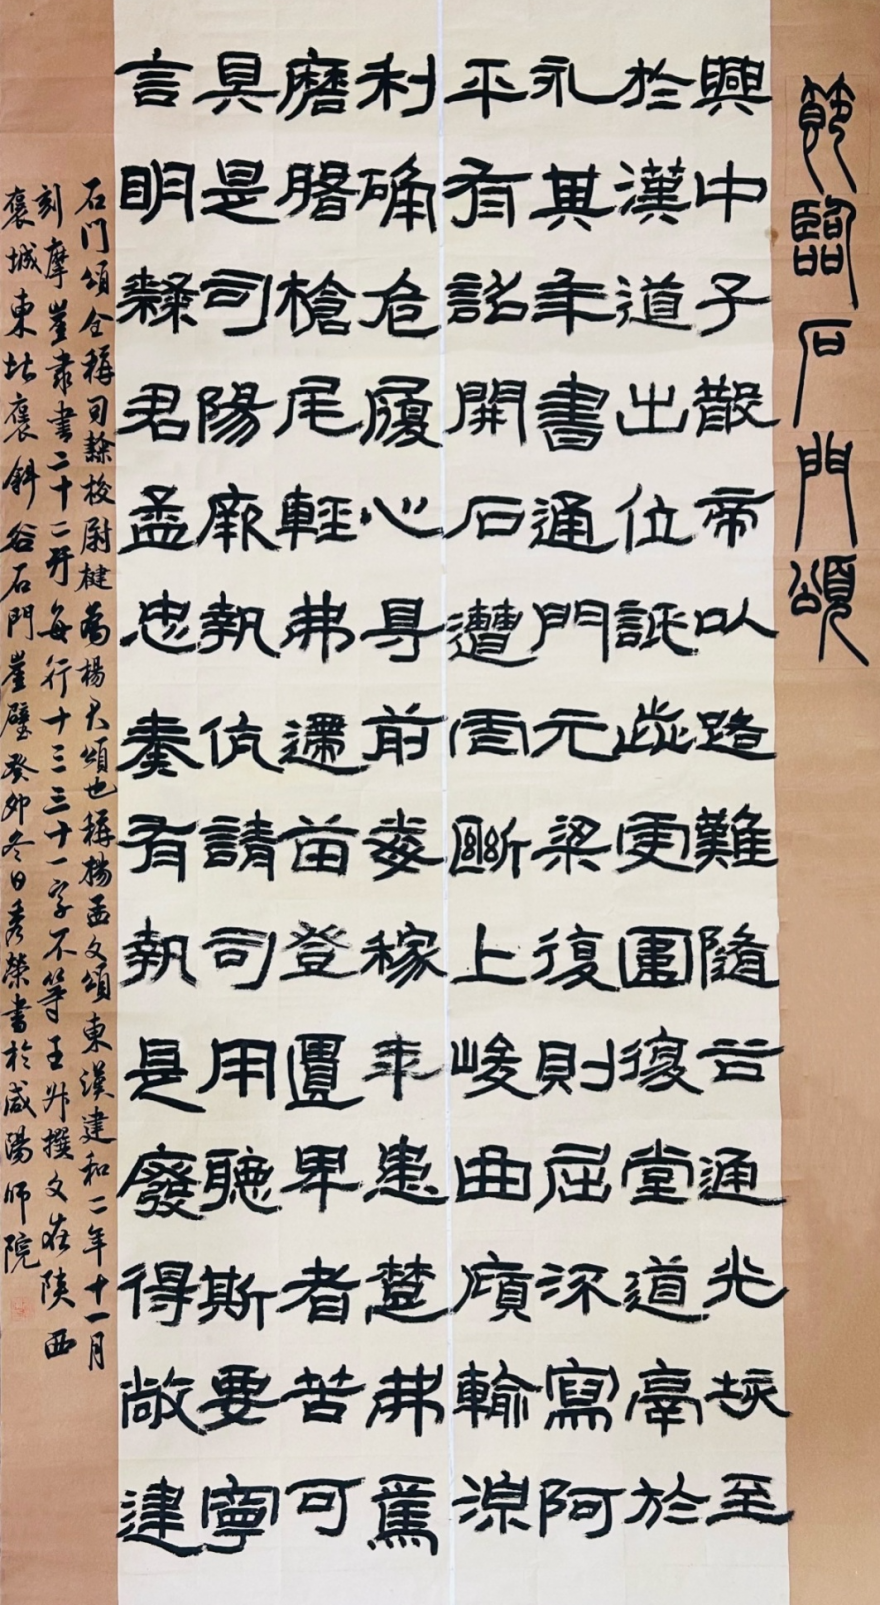 節臨石門頌
興中子散帝以路難隨谷通光垓至
於漢道出位詆澁更圍復堂道鬲於
永其年書通門元梁復則屈流寫阿
平有詔開石遭西斷上峻曲顛輸湶
利确危履心㝵前惡稼年患楚弗焉
磨臨槍尾輕弗遰苗登匱卑者苦可
具是司陽厥執伉請司用聽斯要寧
言明隸君孟忠奏有執是廢得敞建
石门頌全稱司隸校尉楗為楊君頌也稱楊孟文頌東漢建和二年十一月
刻摩崖隸書二十二行每行十三三十一字不等王升撰文在陝西
褒城東北褒斜谷石門崖壁癸卯冬日秀榮書於咸陽師院